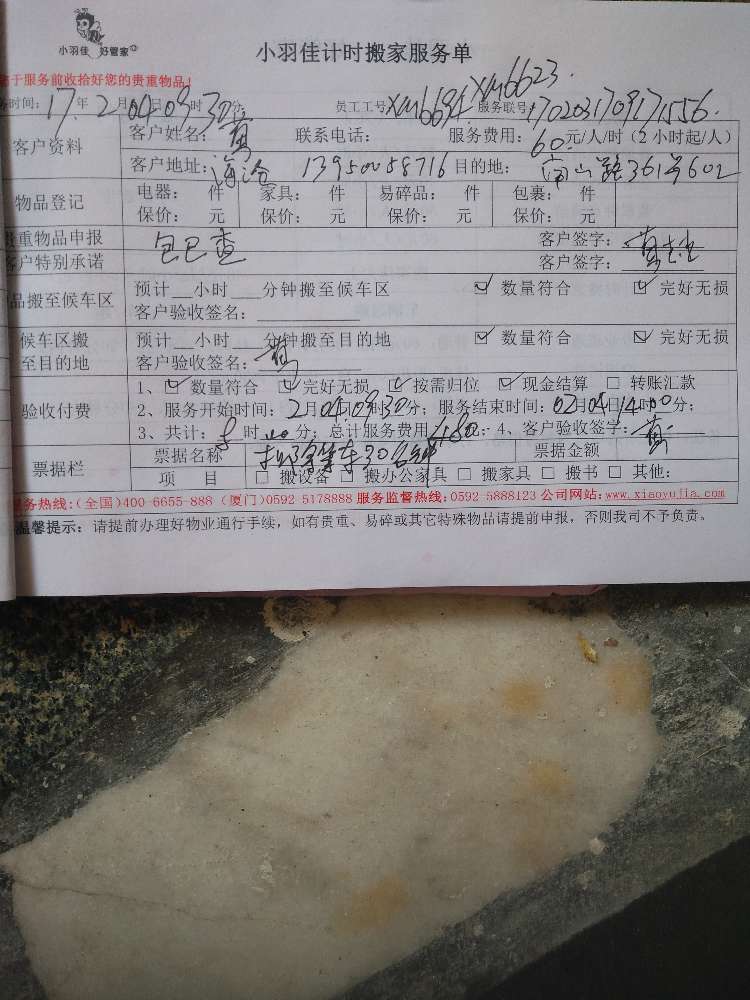 小羽佳 好管家
小羽佳计时搬家服务单
于服务前收拾好您的贵重物品!
务时间: 17年 2月04日09时30分; 员工工号 xm6694 xm6623 服务联号 1702031709171556
客户资料 客户姓名: 黄 联系电话: 服务费用: 60元/人/时(2小时起/人)
客户地址: 海沧 13950058716 目的地: 南山路361号602
物品登记 电器: 件 家具: 件 易碎品: 件 包裹: 件
保价: 元 保价: 元 保价: 元 保价: 元
贵重物品申报 包已查 客户签字: 黄
客户特别承诺 客户签字:
品搬至候车区 预计__小时___分钟搬至候车区 ☑ 数量符合 ☑ 完好无损
客户验收签名:
候车区搬至目的地 预计__小时___分钟搬至目的地 ☑ 数量符合 ☑ 完好无损
客户验收签名: 黄
验收付费 1、☑ 数量符合 ☑ 完好无损 ☑ 按需归位 ☑ 现金结算 □ 转账汇款
2、服务开始时间: 2月04日09时30分; 服务结束时间: 02月04日14时00分;
3、共计: 时 分; 总计服务费用 元; 4、客户验收签字: 黄
票据栏 票据名称 等车30分钟 票据金额
项 目 □ 搬设备 □ 搬办公家具 □ 搬家具 □ 搬书 □ 其他:
服务热线:(全国)400-6655-888 (厦门)0592-5178888 服务监督热线:0592-5888123 公司网站:www.xiaoyujia.com
温馨提示: 请提前办理好物业通行手续,如有贵重、易碎或其它特殊物品请提前申报,否则我司不予负责。